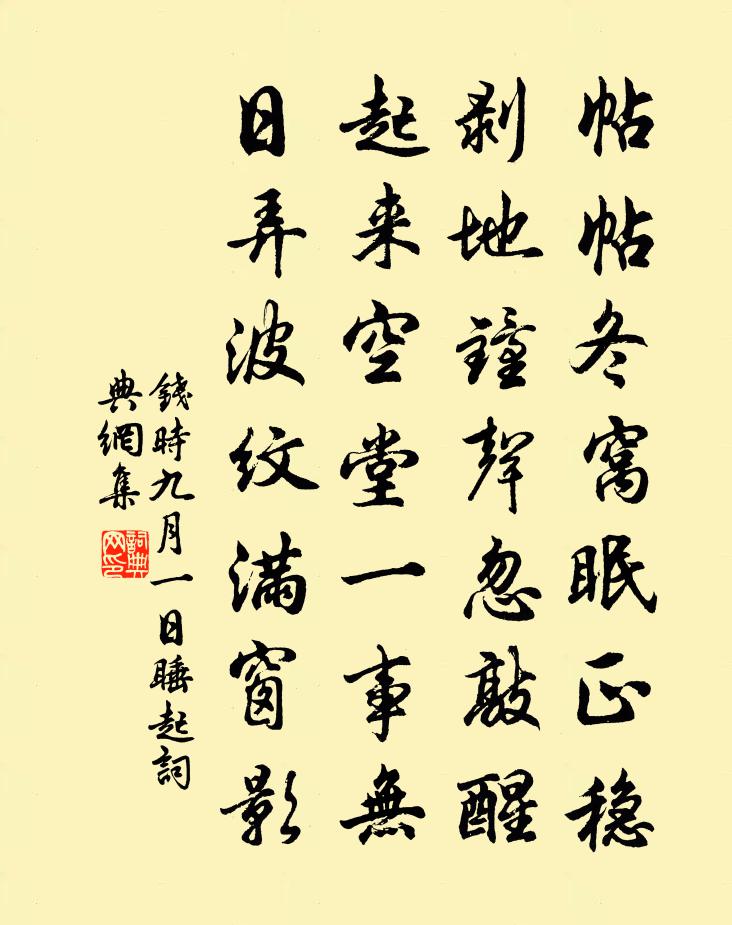 帖帖冬窩眠正穏
剥地鐘聲忽敲醒
起来空堂一事無
日弄波紋滿窗影
錢時九月一日睡起詞
典網集
詞典
网印